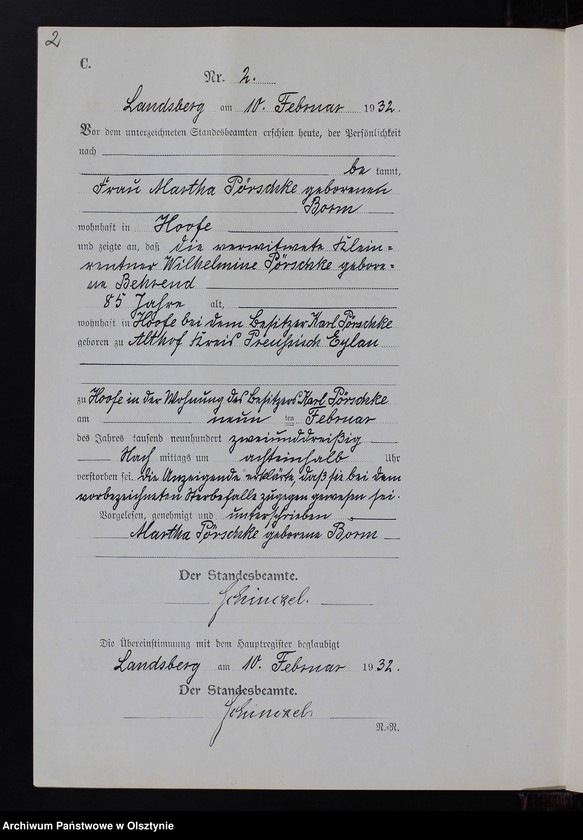 2
C.
Nr. 2.
Landsberg am 10. Februar 1932.
Vor dem unterzeichneten Standesbeamten erschien heute, der Persönlichkeit
nach
be kannt,
Frau Martha Pörschke geborenen
Borm
wohnhaft in Hoofe
und zeigte an, daß die verwitwete Klein=
rentner Wilhelmine Pörschke gebore=
ne Behrend
85 Jahre alt,
wohnhaft in Hoofe bei dem Besitzer Karl Pörschke
geboren zu Althof Kreis Preußisch Eylau
zu Hoofe in der Wohnung des Besitzers Karl Pörschke
am neun ten Februar
des Jahres tausend neunhundert zweiunddreißig
Nach mittags um achteinhalb Uhr
verstorben sei. Die Anzeigende erklärte, daß sie bei dem
vorbezeichneten Sterbefalle zugegen gewesen sei.
Vorgelesen, genehmigt und unterschrieben
Martha Pörschke geborene Borm
Der Standesbeamte.
Schinczel.
Die Übereinstimmung mit dem Hauptregister beglaubigt
Landsberg am 10. Februar 1932.
Der Standesbeamte.
Schinczel.
N.-R.
Archiwum Państwowe w Olsztynie